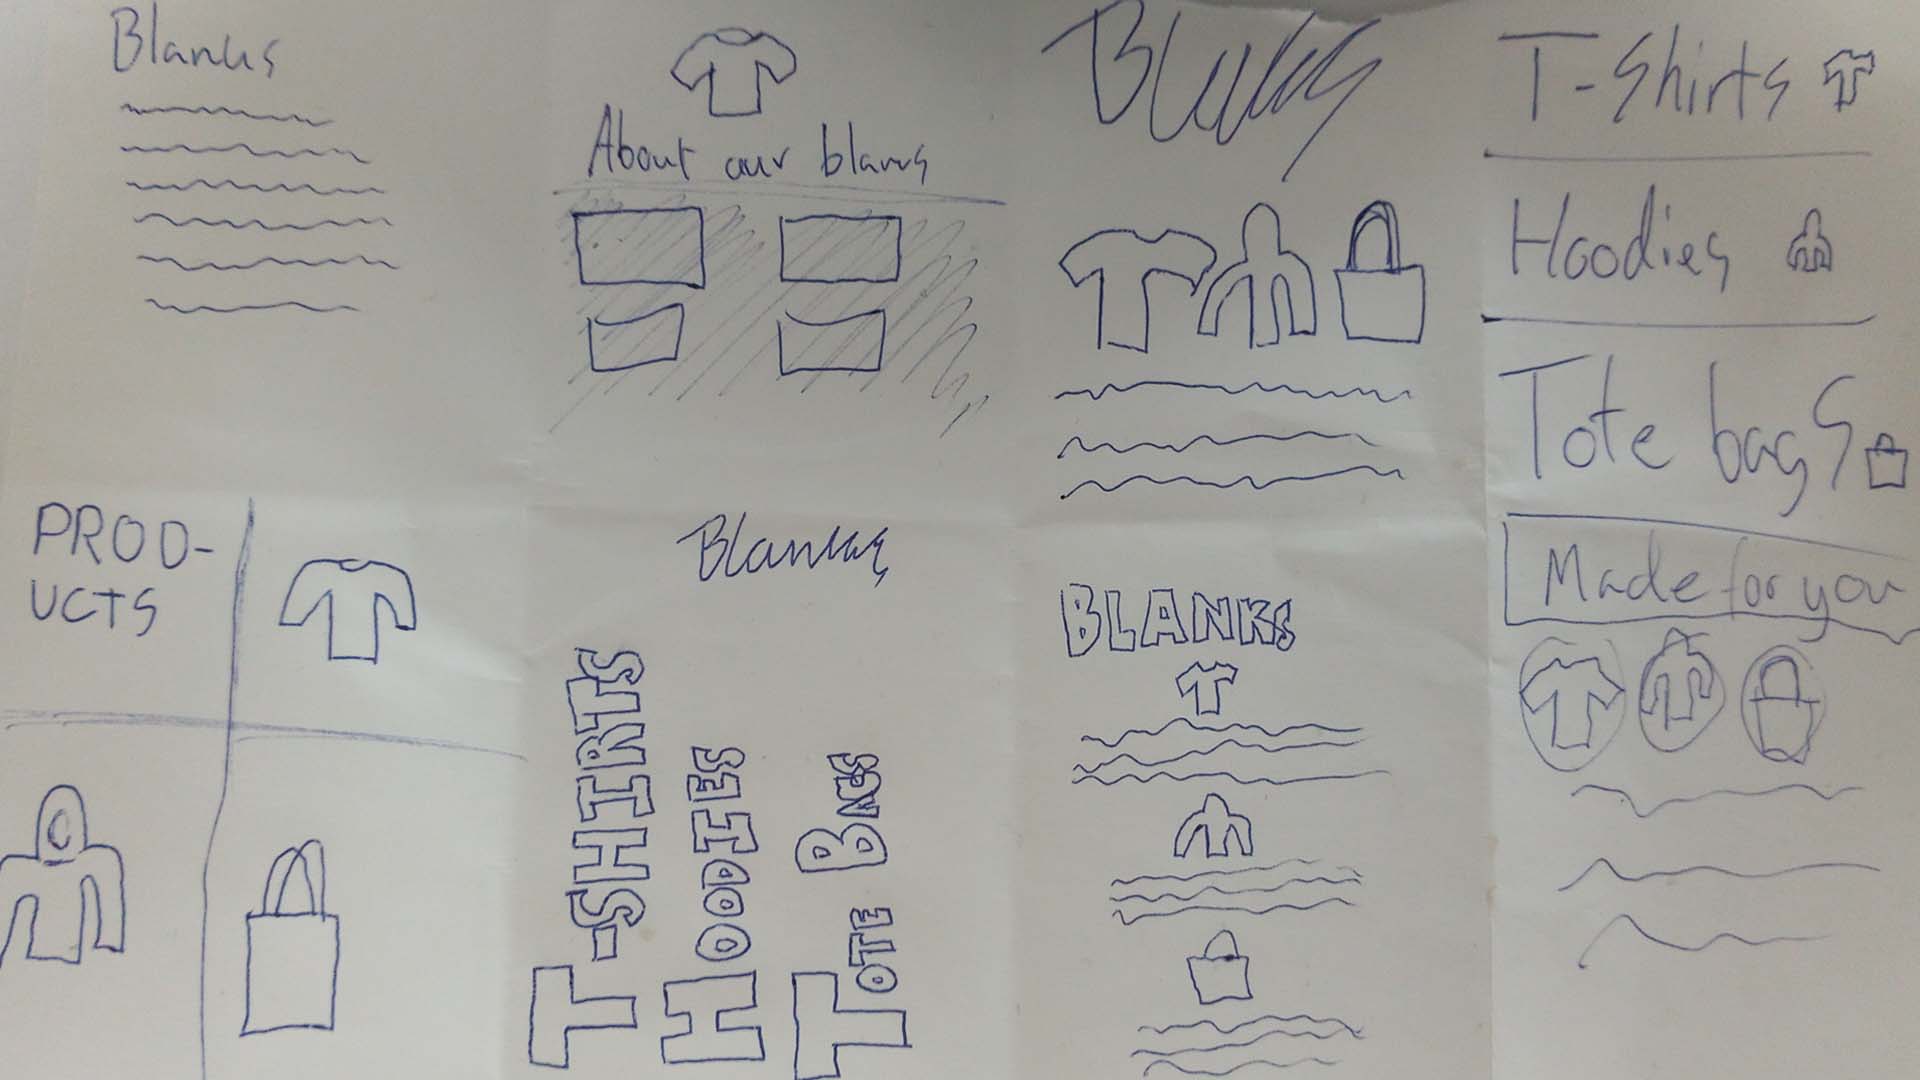 Blanks
About our blanks
Blanks
T-Shirts
Hoodies
Tote bags
PROD-
UCTS
Blanks
T-SHIRTS
HOODIES
TOTE BAGS
BLANKS
Made for you